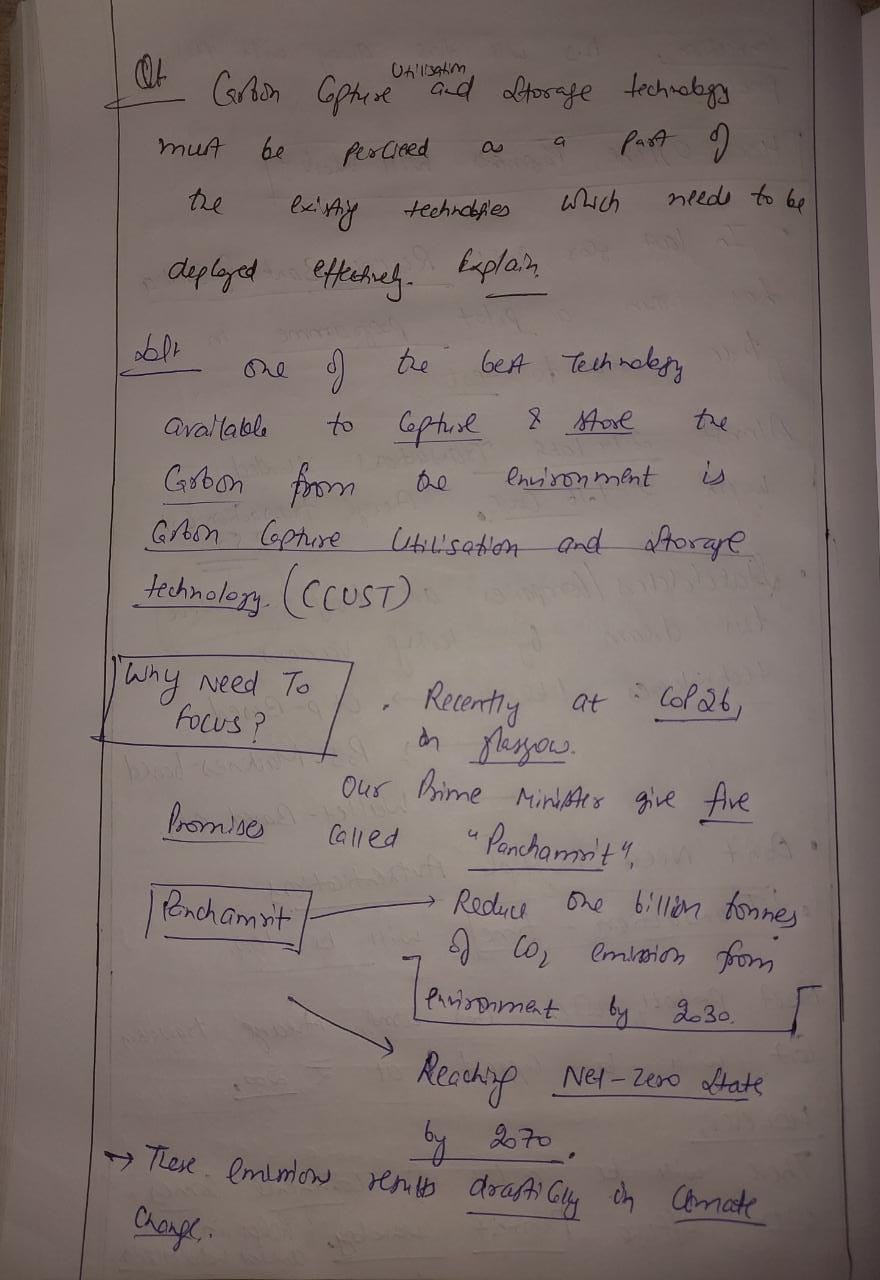 Q1 Carbon Capture Utilisation and Storage technology
must be percieed as a part of
the existing technologies which needs to be
deployed effectively. Explain.
Sol:
one of the best Technology
available to Capture & store the
Carbon from the environment is
Carbon Capture Utilisation and Storage
technology. (CCUST)
Why Need To
focus?
. Recently at COP26,
in glasgow.
Our Prime Minister give five
Promises called "Panchamrit",
Panchamrit → Reduce one billion tonnes
of CO2 emission from
environment by 2030.
→ Reaching Net-Zero State
by 2070.
→ These emissions results drastically in Climate
Change.